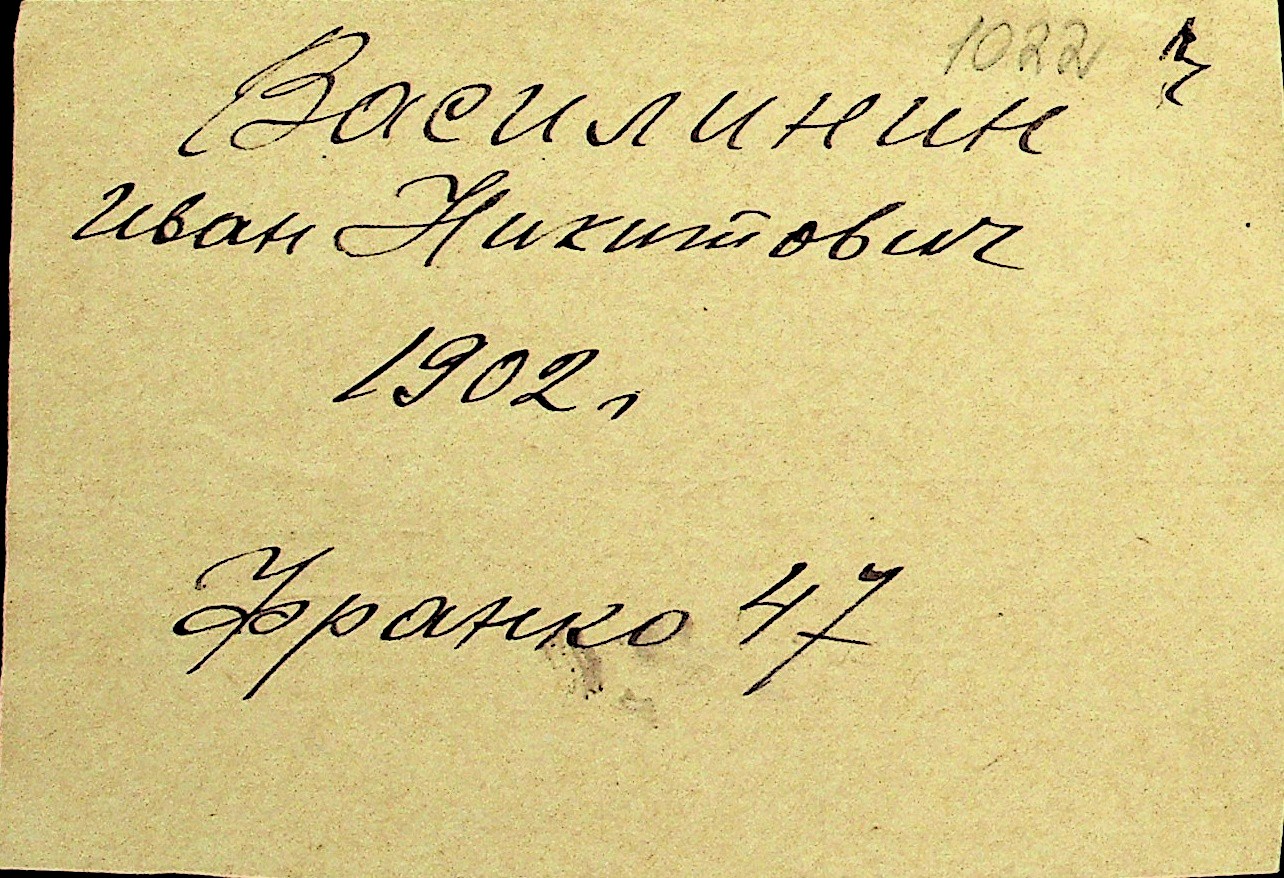 1022
Василинин
Иван Никитович
1902г
Франко 47